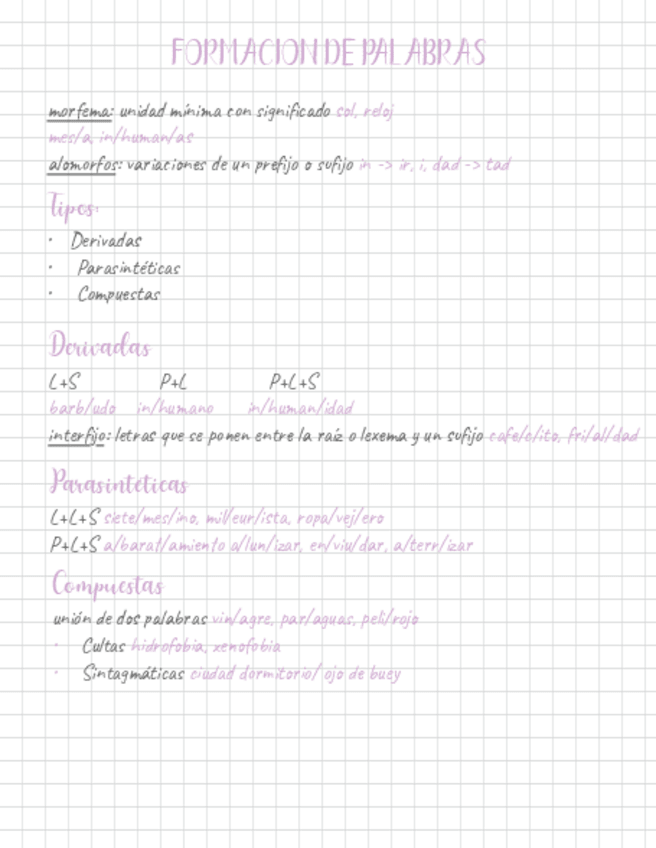 FORMACION DE PALABRAS
morfema: unidad mínima con significado sol, reloj
mes/a, in/human/as
alomorfos: variaciones de un prefijo o sufijo in -> ir, i, dad -> tad
Tipos:
· Derivadas
· Parasintéticas
· Compuestas
Derivadas
L+S P+L P+L+S
barb/udo in/humano in/human/idad
interfijo: letras que se ponen entre la raíz o lexema y un sufijo cafe/c/ito, fri/al/dad
Parasintéticas
L+L+S siete/mes/ino, mil/eur/ista, ropa/vej/ero
P+L+S a/barat/amiento a/lun/izar, en/viu/dar, a/terr/izar
Compuestas
unión de dos palabras vin/agre, par/aguas, peli/rojo
· Cultas hidrofobia, xenofobia
· Sintagmáticas ciudad dormitorio/ ojo de buey